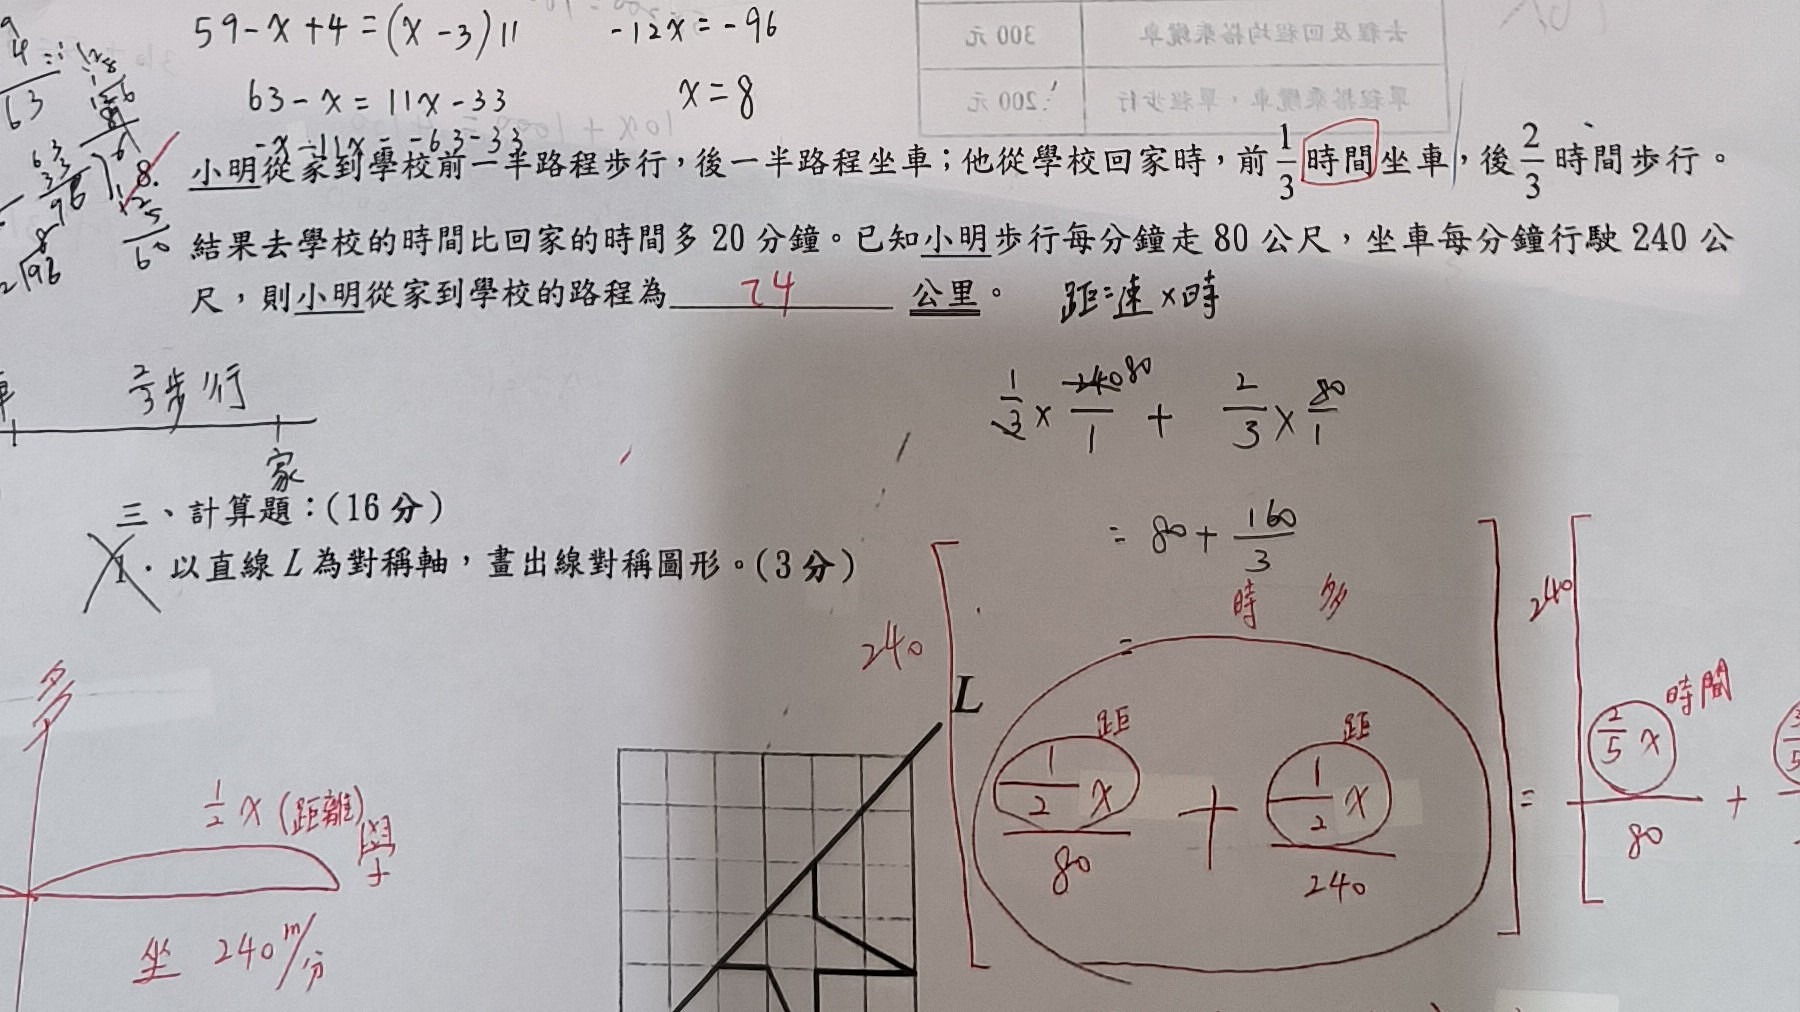 59-x+4=(x-3)11
-12x=-96
63-x=11x-33
x=8
-x-11x=-63-33
去程及回程均搭乘纜車 300 元
單程搭乘纜車，單程步行 200 元
8. 小明從家到學校前一半路程步行，後一半路程坐車；他從學校回家時，前 1/3 時間坐車，後 2/3 時間步行。
結果去學校的時間比回家的時間多 20 分鐘。已知小明步行每分鐘走 80 公尺，坐車每分鐘行駛 240 公
尺，則小明從家到學校的路程為 24 公里。
距=速×時
2/3 步行
家
1/3 × 240 80 / 1 + 2/3 × 80/1
= 80 + 160/3
三、計算題：(16 分)
1．以直線 L 為對稱軸，畫出線對稱圖形。(3 分)
時 多
=
240
240
L
多
距
距
時間
1/2 x / 80 + 1/2 x / 240 = 2/5 x / 80 +
1/2 x (距離)
學
坐 240 m/分